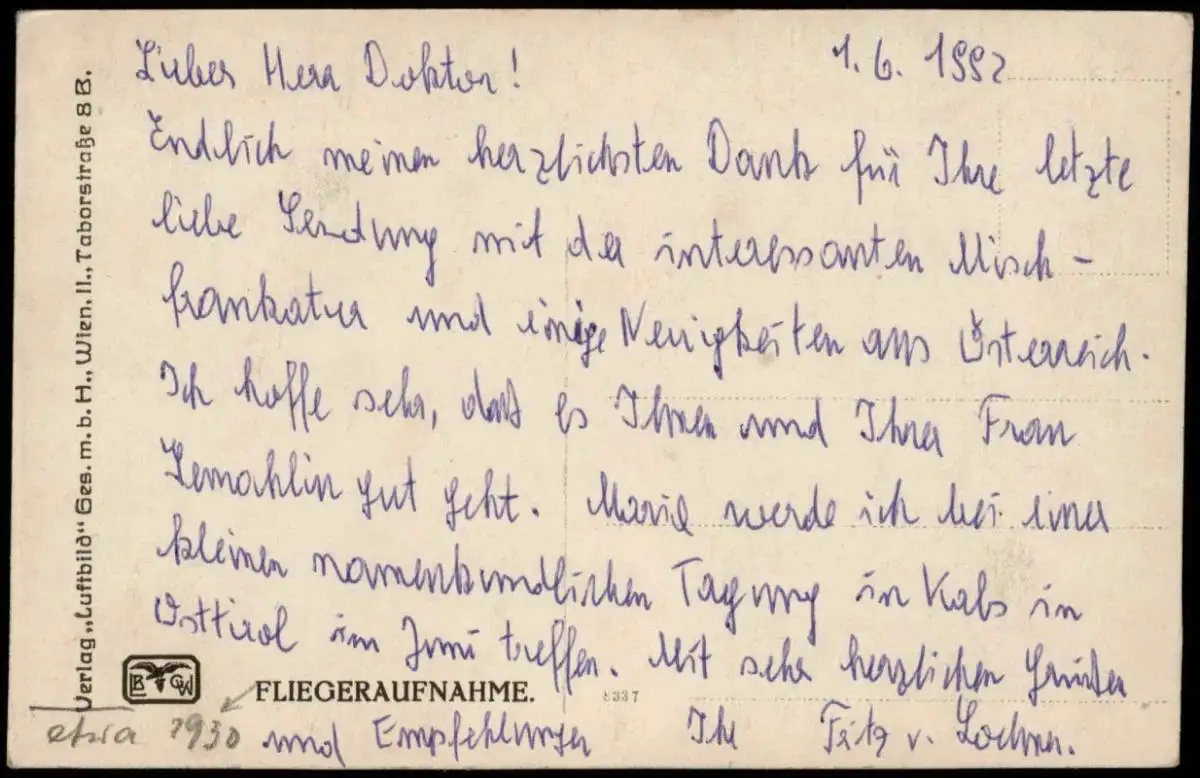 1. 6. 1992
Lieber Herr Doktor!
Endlich meinen herzlichsten Dank für Ihre letzte
liebe Sendung mit der interessanten Misch-
frankatur und einige Neuigkeiten aus Österreich.
Ich hoffe sehr, daß es Ihnen und Ihrer Frau
Gemahlin gut geht. werde ich bei einer
kleinen namenkundlichen Tagung in Kals in
Osttirol im Juni treffen. Mit sehr herzlichen Grüßen
und Empfehlungen Ihr Fritz v. Lochner.
Verlag „Luftbild" Ges. m. b. H., Wien, II., Taborstraße 8 B.
LB GW
FLIEGERAUFNAHME.
etwa 1930